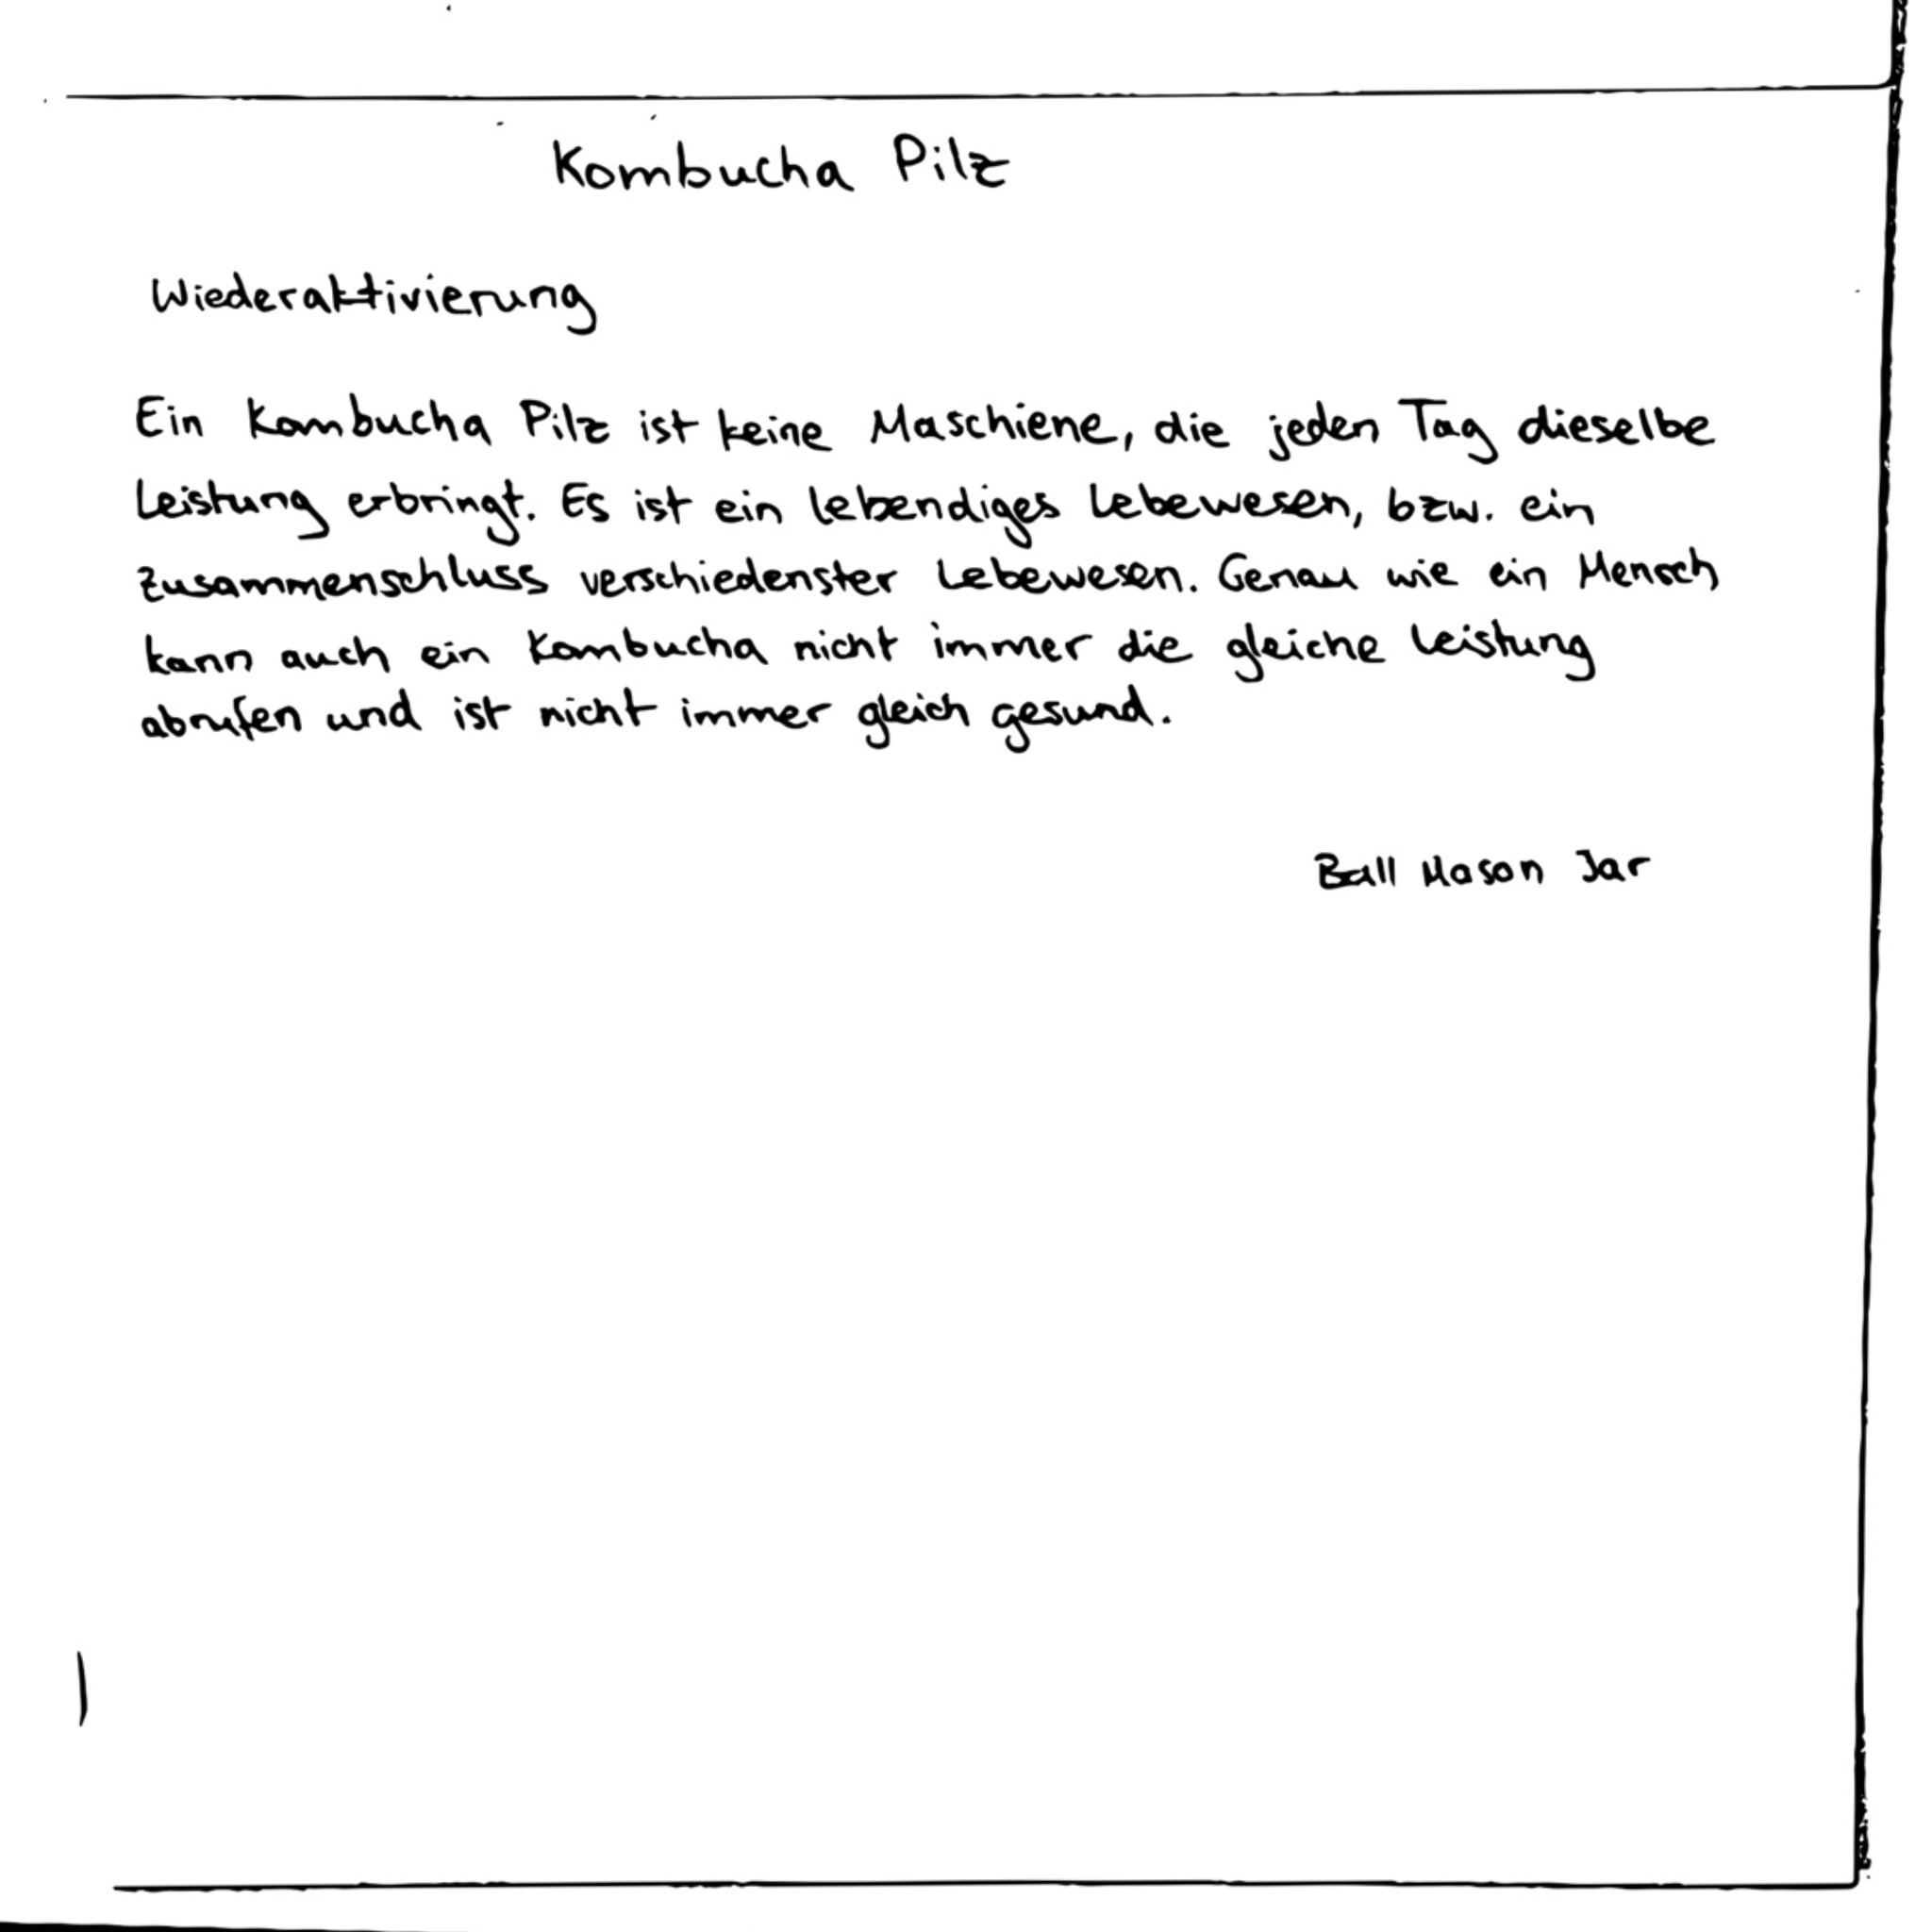 Kombucha Pilz
Wiederaktivierung
Ein Kombucha Pilz ist keine Maschiene, die jeden Tag dieselbe
Leistung erbringt. Es ist ein lebendiges Lebewesen, bzw. ein
Zusammenschluss verschiedenster Lebewesen. Genau wie ein Mensch
kann auch ein Kombucha nicht immer die gleiche Leistung
abrufen und ist nicht immer gleich gesund.
Ball Mason Jar